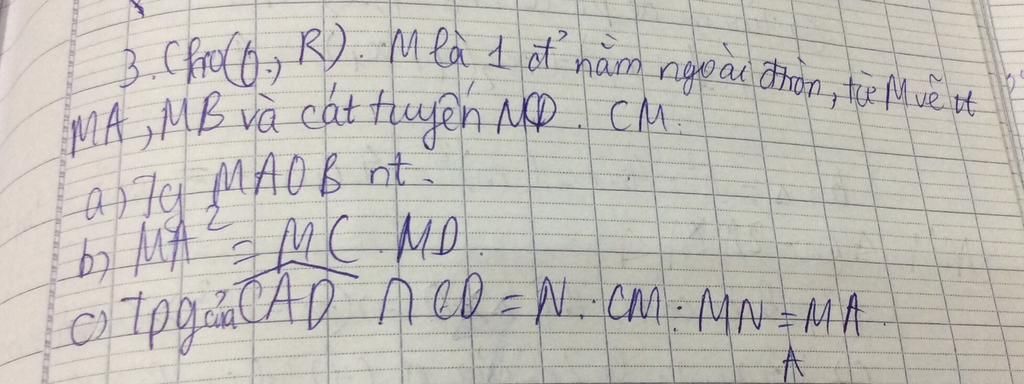 3. Cho (O; R). M là 1 đ' nằm ngoài đtròn, từ M vẽ tt
MA, MB và cát tuyến MCD. CM:
a) Tg MAOB nt.
b) MA² = MC . MD.
c) Tpg của CAD ∩ CD = N. CM: MN = MA.
A